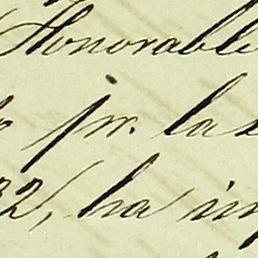 Honorable
pr. la
32, ha